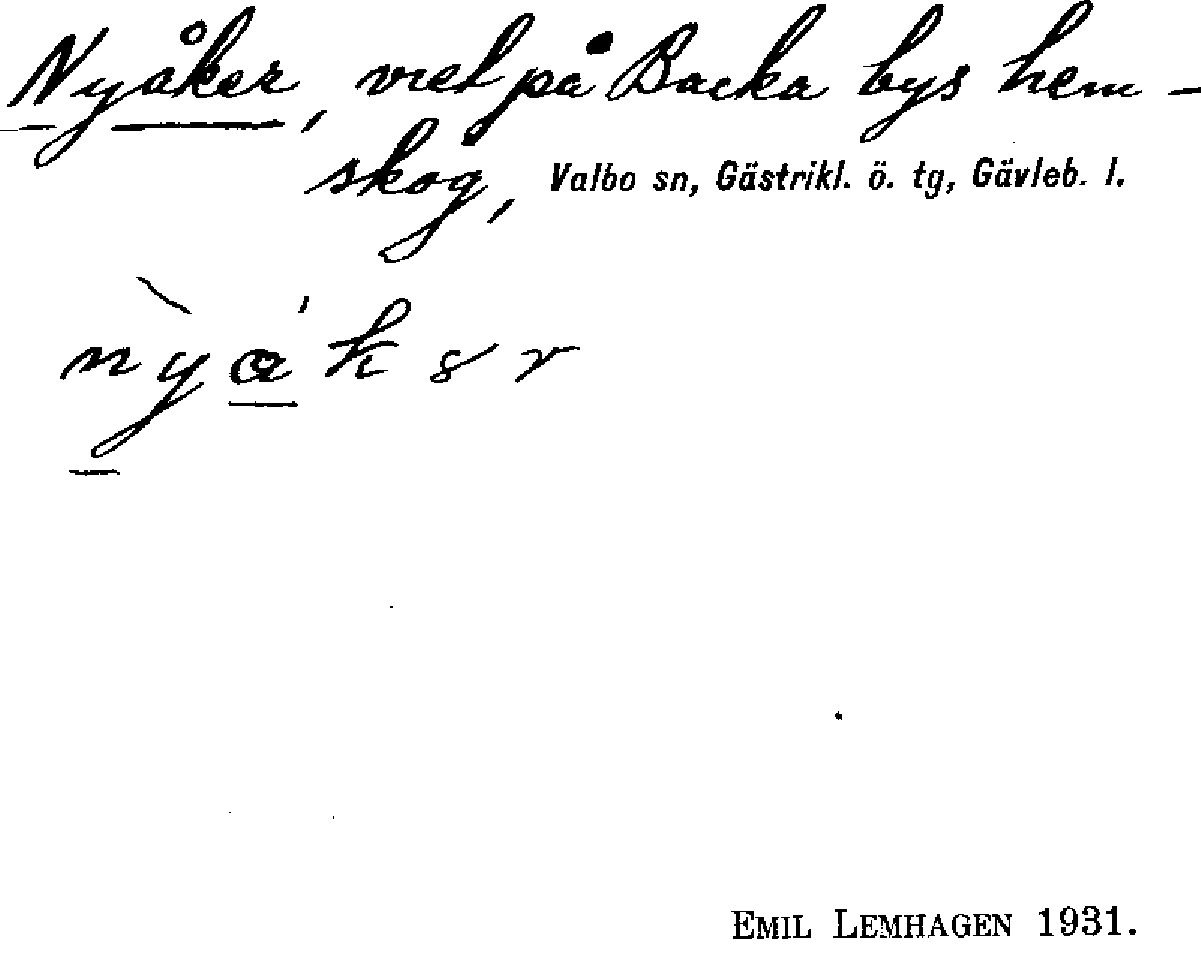 Nyåker, vret på Backa bys hem-
skog, Valbo sn, Gästrikl. ö. tg, Gävleb. l.
EMIL LEMHAGEN 1931.